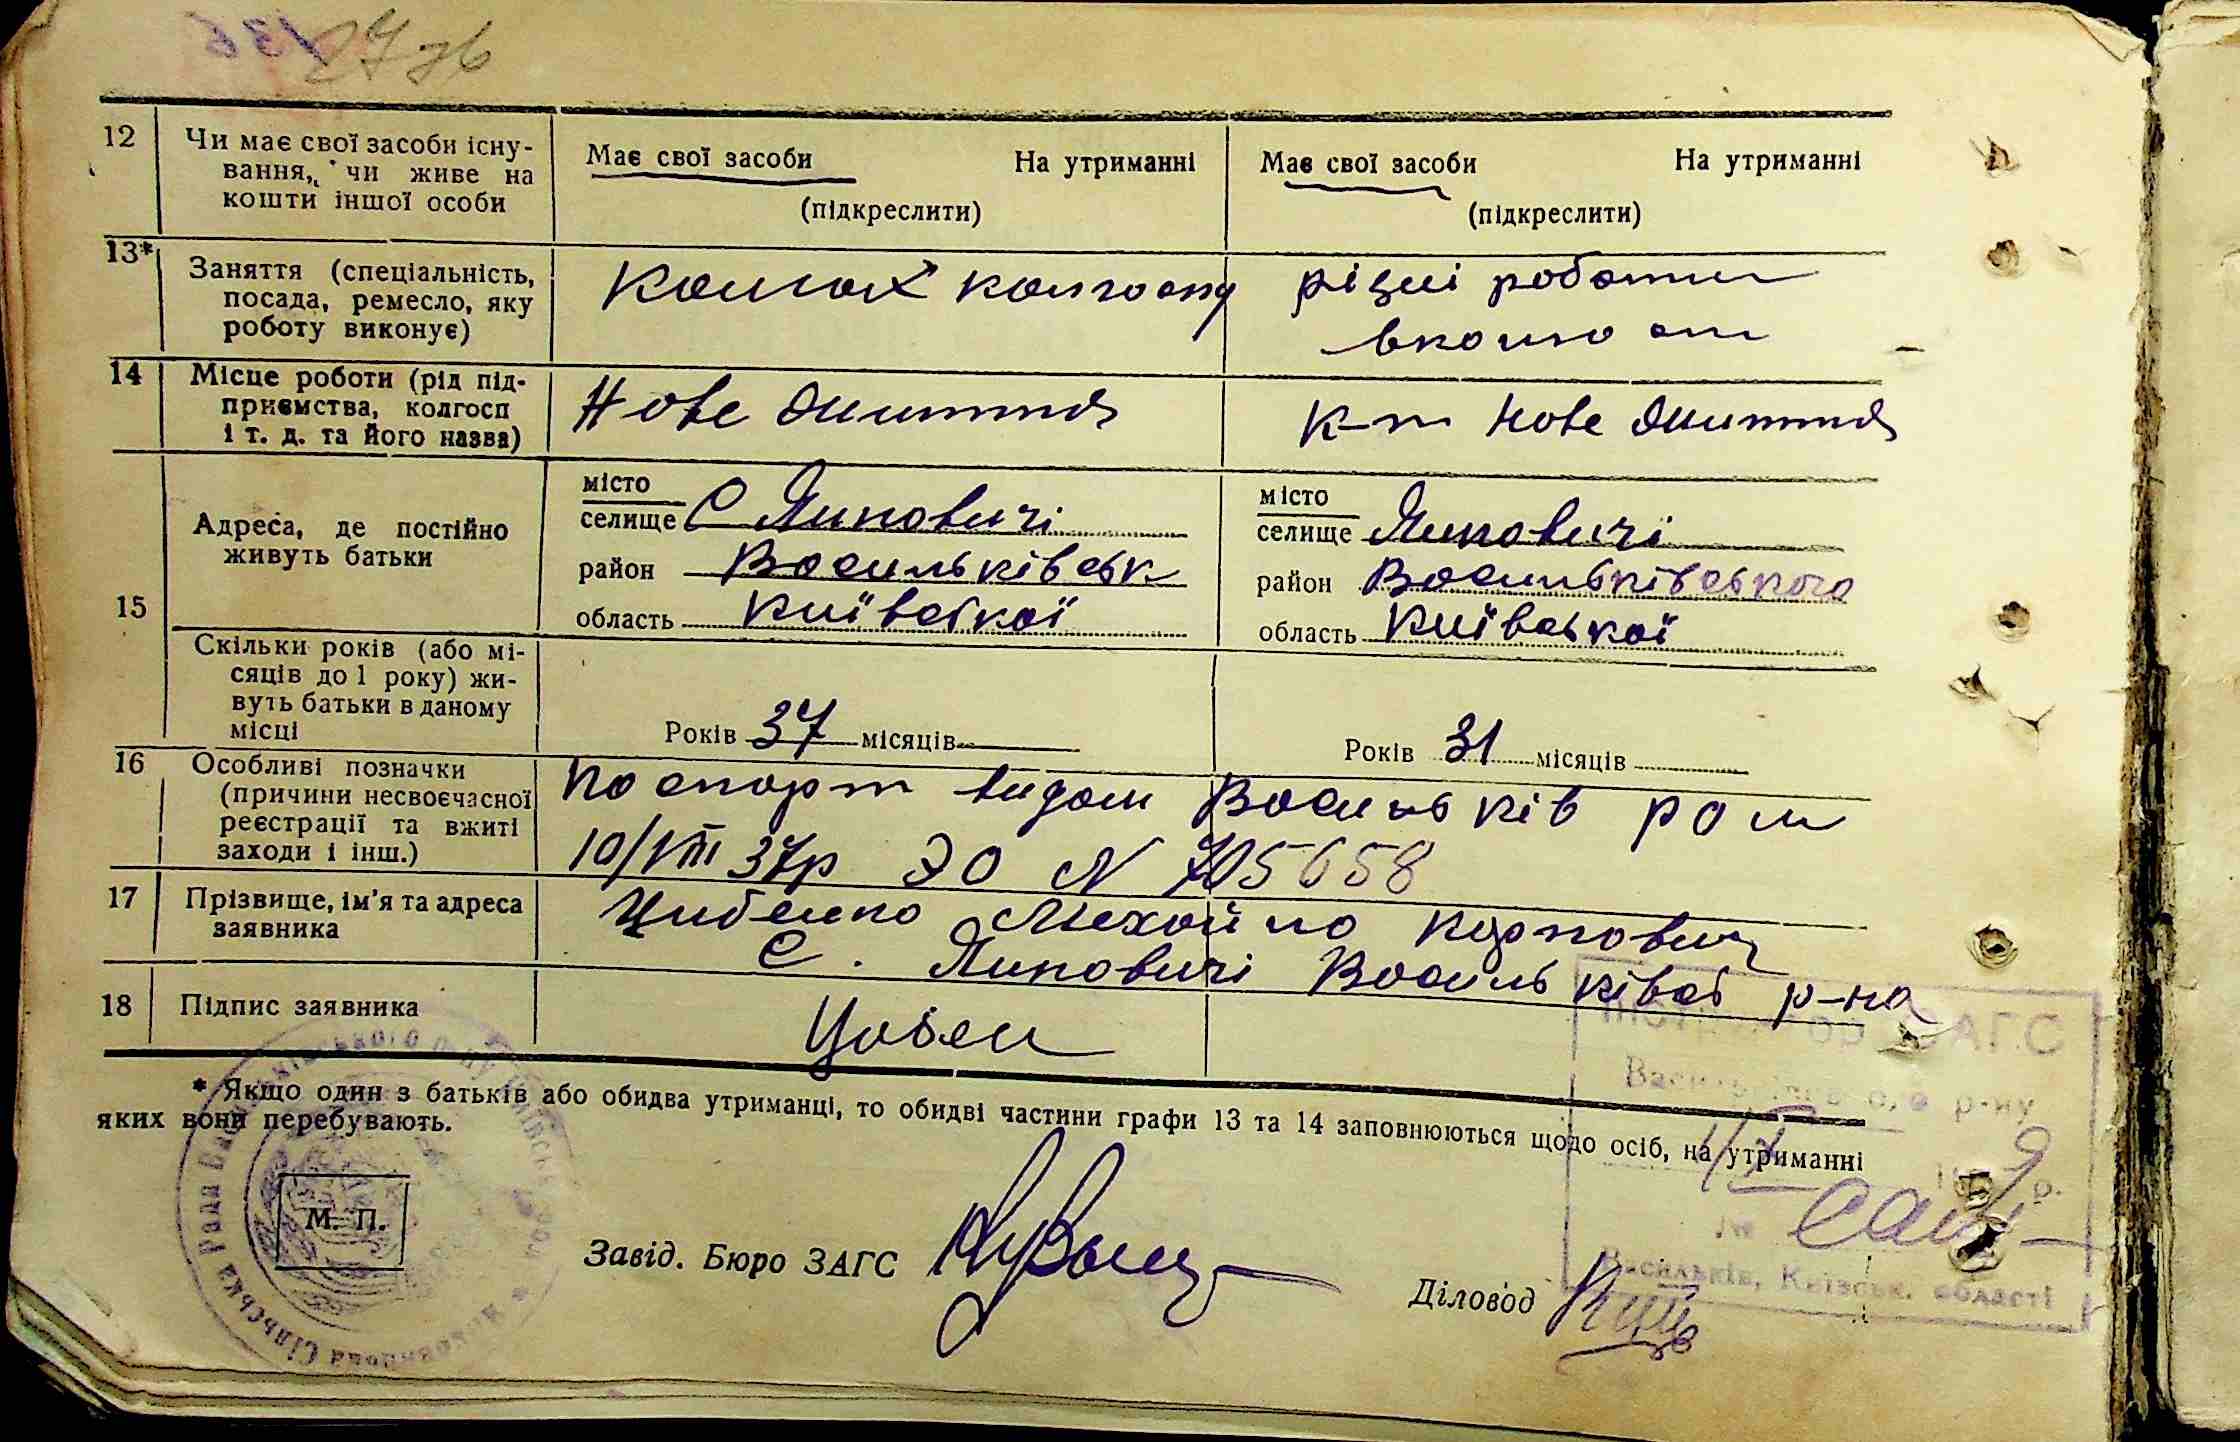 12 Чи має свої засоби існу-
вання, чи живе на
кошти іншої особи
Має свої засоби На утриманні
(підкреслити)
Має свої засоби На утриманні
(підкреслити)
13* Заняття (спеціальність,
посада, ремесло, яку
роботу виконує)
колгоспу
різні роботи
14 Місце роботи (рід під-
приємства, колгосп
і т. д. та його назва)
Нове життя
к-п Нове життя
15 Адреса, де постійно
живуть батьки
місто
селище С Липовичі
район Васильківськ
область Київської
місто
селище Липовичі
район Васильківського
область Київської
Скільки років (або мі-
сяців до 1 року) жи-
вуть батьки в даному
місці
Років 37 місяців
Років 31 місяців
16 Особливі позначки
(причини несвоєчасної
реєстрації та вжиті
заходи і інш.)
паспорт видан Васильків
10/VIII 37р ЭО N 705658
17 Прізвище, ім'я та адреса
заявника
Михайло Карпович
С. Липовичі Васильківсь р-на
18 Підпис заявника
* Якщо один з батьків або обидва утриманці, то обидві частини графи 13 та 14 заповнюються щодо осіб, на утриманні
яких вони перебувають.
М. П.
Завід. Бюро ЗАГС
Діловод
ЗАГС
р-ну
Васильків, Київськ. області